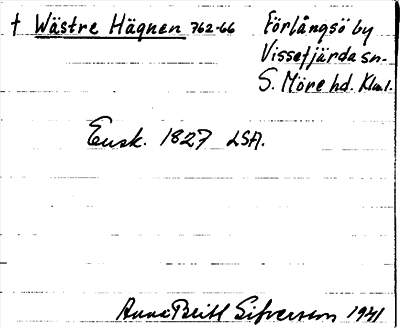 † Wästre Hägnen 762-66 Förlångsö by
Vissefjärda sn.
S. Möre hd. Klm l.
Ensk. 1827 LSA.
Anna Britt Sifversson 1941